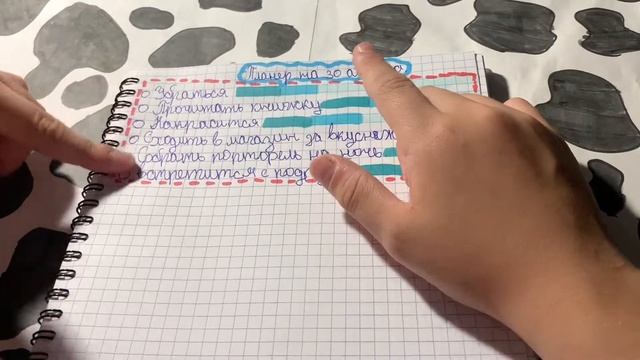 Планер на 30 а
О Убраться
О Прочитать книжку
О Накраситься
О Сходить в магазин за вкусняж
Собрать портфель на ночь
встретится с подр